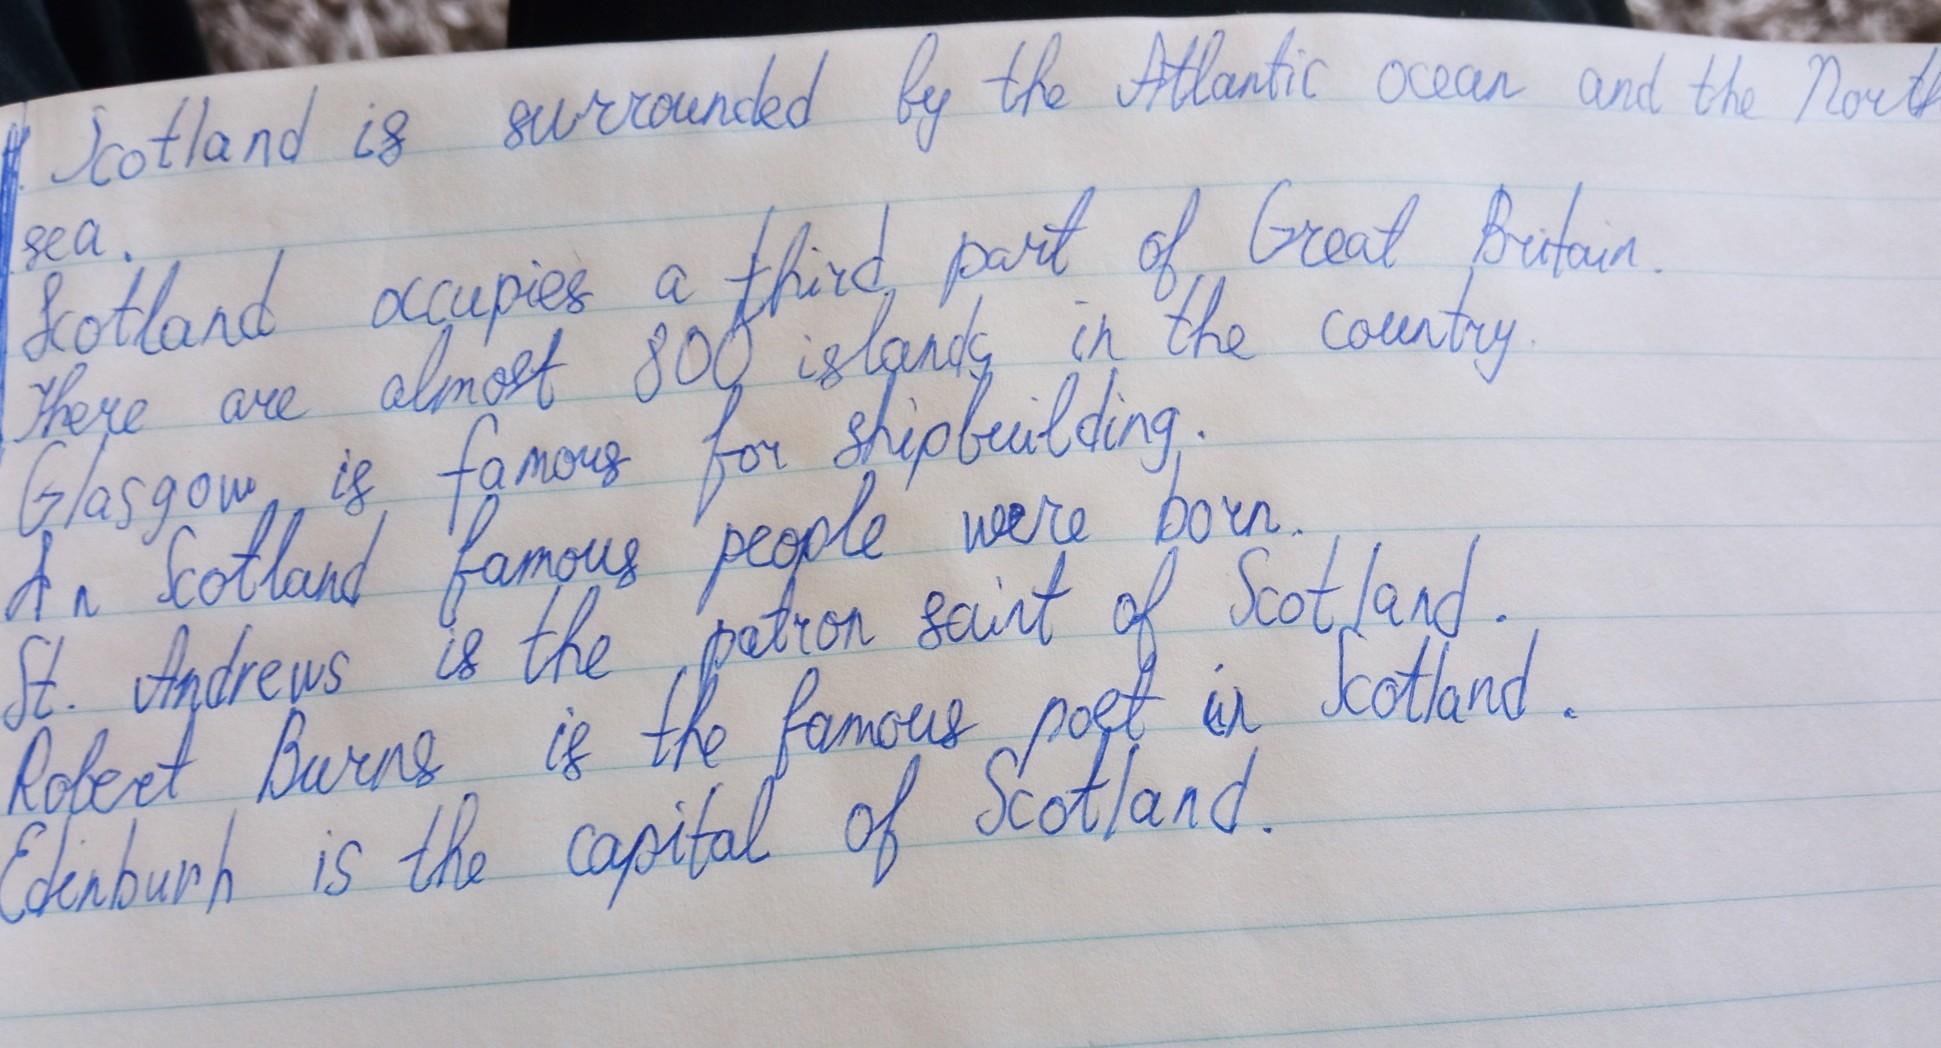 Scotland is surrounded by the Atlantic ocean and the North
sea.
Scotland occupies a third part of Great Britain.
There are almost 800 islands in the country.
Glasgow is famous for shipbuilding.
In Scotland famous people were born.
St. Andrews is the patron saint of Scotland.
Robert Burns is the famous poet in Scotland.
Edinburh is the capital of Scotland.